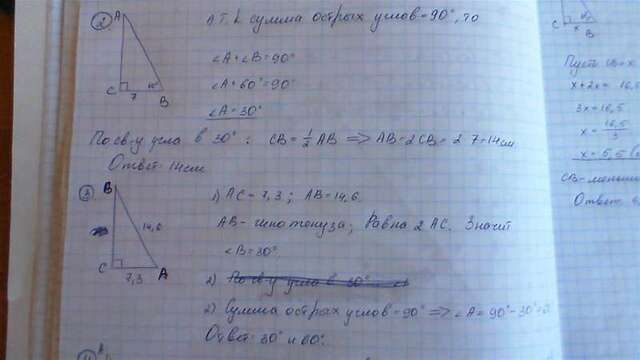 2
A
C
7
60°
B
1) Т.к сумма острых углов = 90°, то
∠A+∠B=90°
∠A+60°=90°
∠A=30°
По св-у угла в 30°: CB=½AB => AB=2CB=2·7=14см
Ответ: 14см
3
B
14,6
C
7,3
A
1) AC=7,3; AB=14,6.
AB - гипотенуза; Равна 2AC. Значит
∠B=30°.
2) По св-у угла в 30°
2) Сумма острых углов=90° => ∠A=90°-30°=
Ответ: 30° и 60°.
C
x
B
Пусть CB=x
x+2x=16,5
3x=16,5
x=16,5/3
x=5,5
CB-меньш
Ответ: